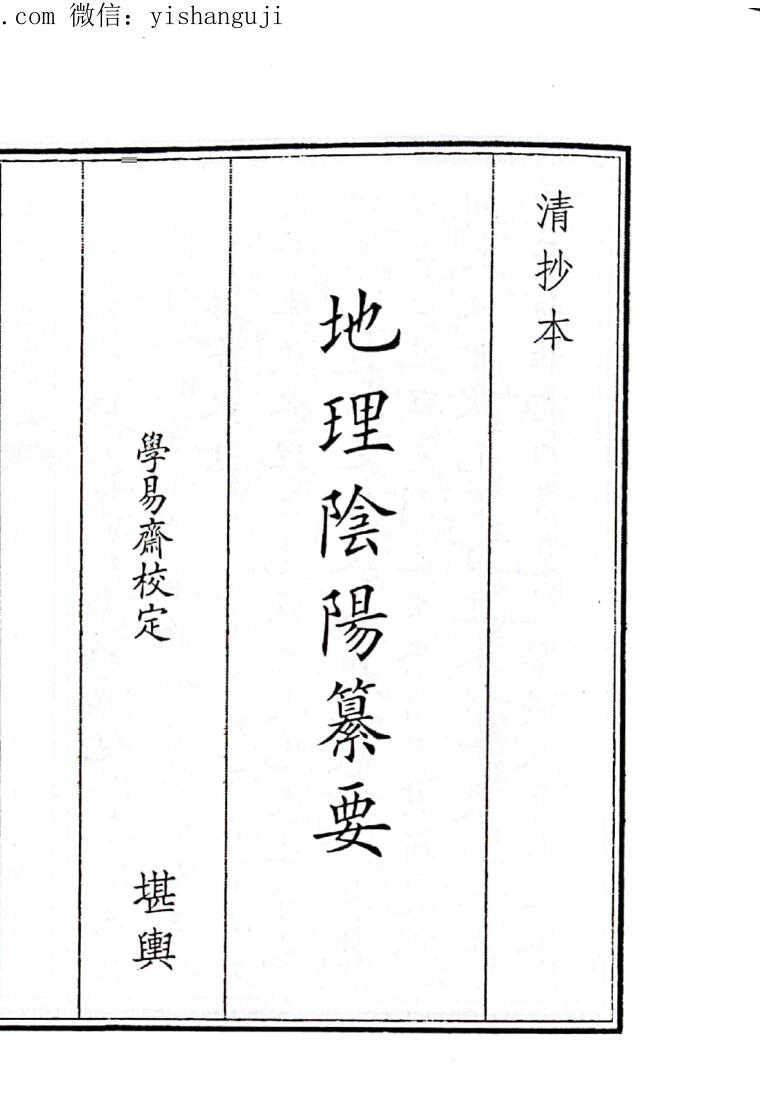 .com 微信：yishanguji
清抄本
地理陰陽纂要
學易齋校定
堪輿